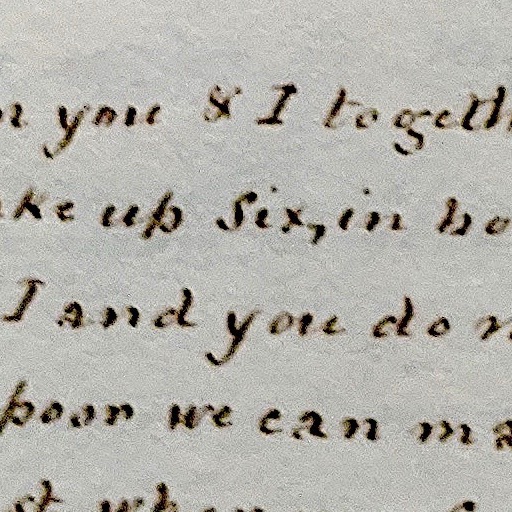 you & I togeth
ke up Six, in bo
I and you do n
poor we can ma
st when